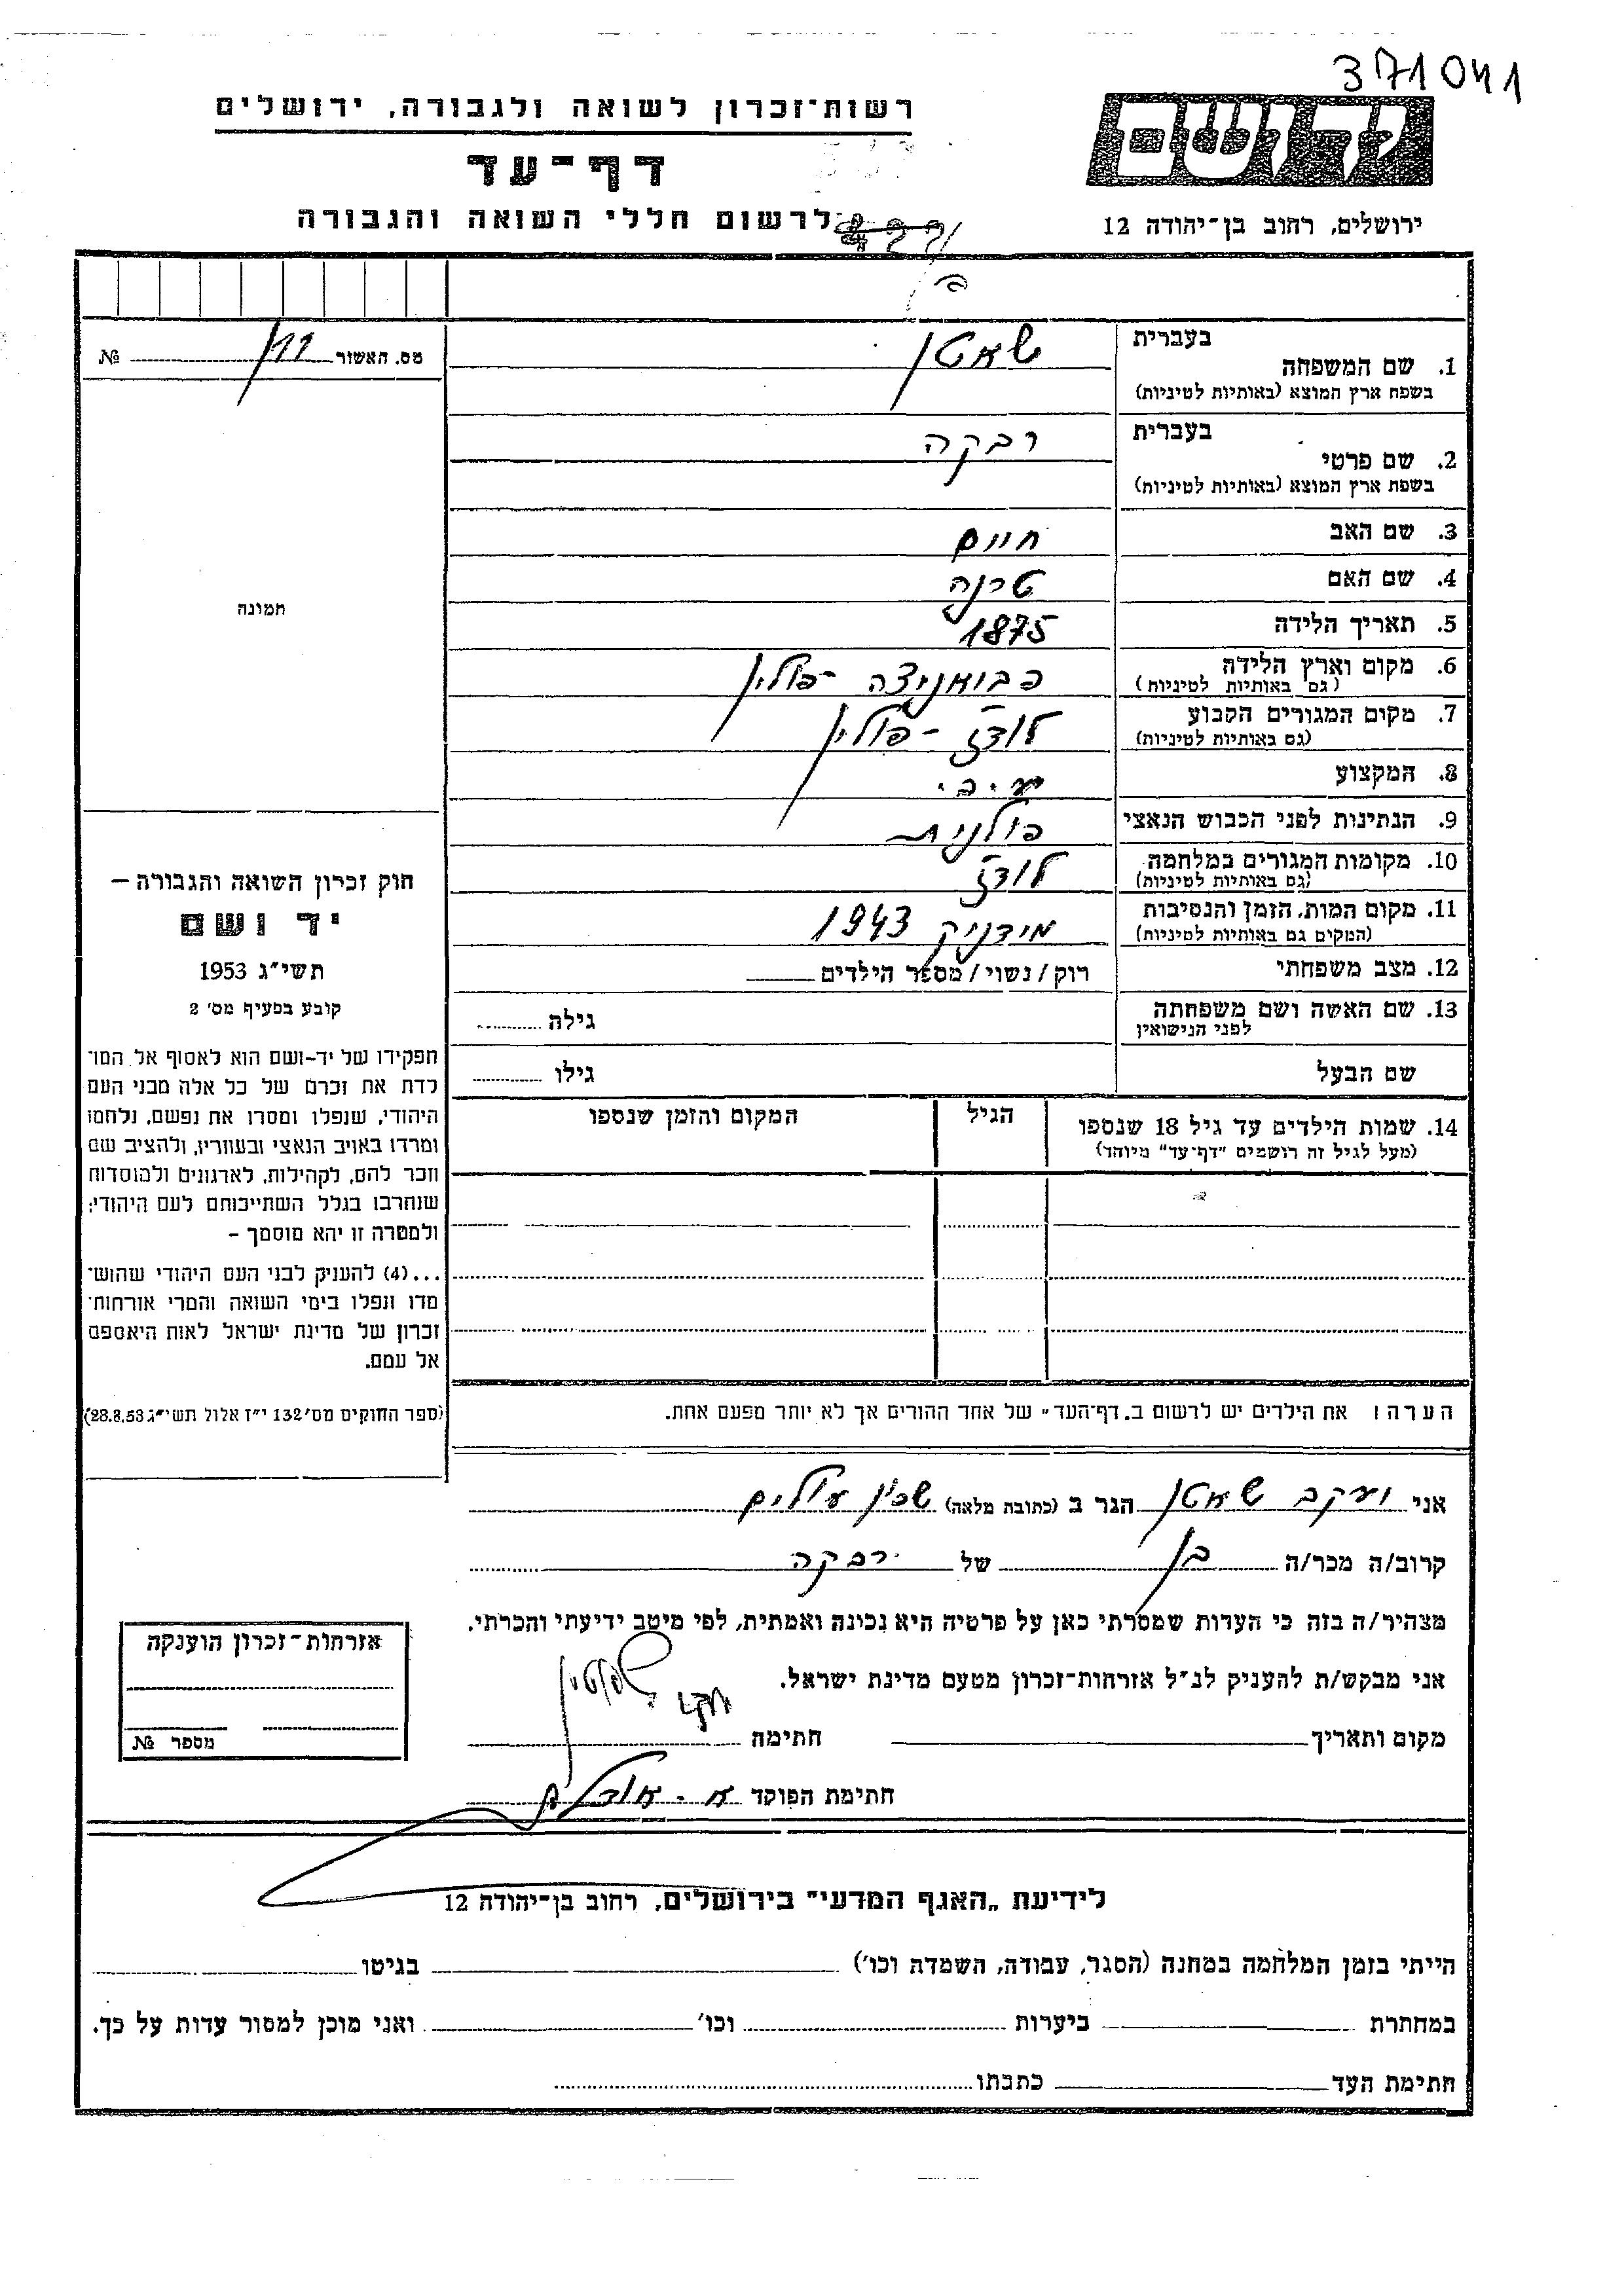 371041
רשות־זכרון לשואה ולגבורה, ירושלים
יד ושם
דף־עד
לרשום חללי השואה והגבורה
ירושלים, רחוב בן־יהודה 12
מס. האשור № 
1. שם המשפחה בעברית שאטן
בשפת ארץ המוצא (באותיות לטיניות)
2. שם פרטי בעברית רבקה
בשפת ארץ המוצא (באותיות לטיניות)
3. שם האב חיים
4. שם האם טרנה
5. תאריך הלידה 1875
6. מקום וארץ הלידה פביאניצה - פולין
(גם באותיות לטיניות)
7. מקום המגורים הקבוע לודז - פולין
(גם באותיות לטיניות)
8. המקצוע
9. הנתינות לפני הכבוש הנאצי פולנית
10. מקומות המגורים במלחמה לודז
(גם באותיות לטיניות)
11. מקום המות, הזמן והנסיבות מידניק 1943
(המקום גם באותיות לטיניות)
12. מצב משפחתי רוק/נשוי/מספר הילדים
13. שם האשה ושם משפחתה לפני הנישואין גילה
שם הבעל גילו
14. שמות הילדים עד גיל 18 שנספו הגיל המקום והזמן שנספו
(מעל לגיל זה רושמים "דף־עד" מיוחד)
הערה: את הילדים יש לרשום ב„דף־העד" של אחד ההורים אך לא יותר מפעם אחת.
תמונה
חוק זכרון השואה והגבורה —
יד ושם
תשי"ג 1953
קובע בסעיף מס' 2
תפקידו של יד-ושם הוא לאסוף אל המו־
לדת את זכרם של כל אלה מבני העם
היהודי, שנפלו ומסרו את נפשם, נלחמו
ומרדו באויב הנאצי ובעוזריו, ולהציב שם
וזכר להם, לקהילות, לארגונים ולמוסדות
שנחרבו בגלל השתייכותם לעם היהודי;
ולמטרה זו יהא מוסמך —
...(4) להעניק לבני העם היהודי שהוש־
מדו ונפלו בימי השואה והמרי אזרחות־
זכרון של מדינת ישראל לאות היאספם
אל עמם.
(ספר החוקים מס' 132 י"ז אלול תשי"ג 28.8.53)
אני יעקב שאטן הגר ב (כתובת מלאה) שכון עולים
קרוב/ה מכר/ה בן של רבקה
מצהיר/ה בזה כי העדות שמסרתי כאן על פרטיה היא נכונה ואמתית, לפי מיטב ידיעתי והכרתי.
אני מבקש/ת להעניק לנ"ל אזרחות־זכרון מטעם מדינת ישראל.
מקום ותאריך חתימה
חתימת הפוקד
אזרחות־זכרון הוענקה
מספר №
לידיעת „האגף המדעי" בירושלים, רחוב בן־יהודה 12
הייתי בזמן המלחמה במחנה (הסגר, עבודה, השמדה וכו') בגיטו
במחתרת ביערות וכו' ואני מוכן למסור עדות על כך.
חתימת העד כתבתו